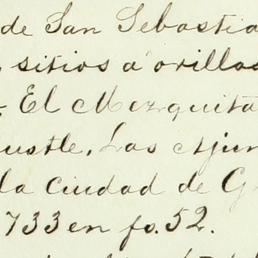 de San Sebastia
sitios á orillas
El Mezquita
ustle, Las Ajun
la Ciudad de G
733 en fo. 52.